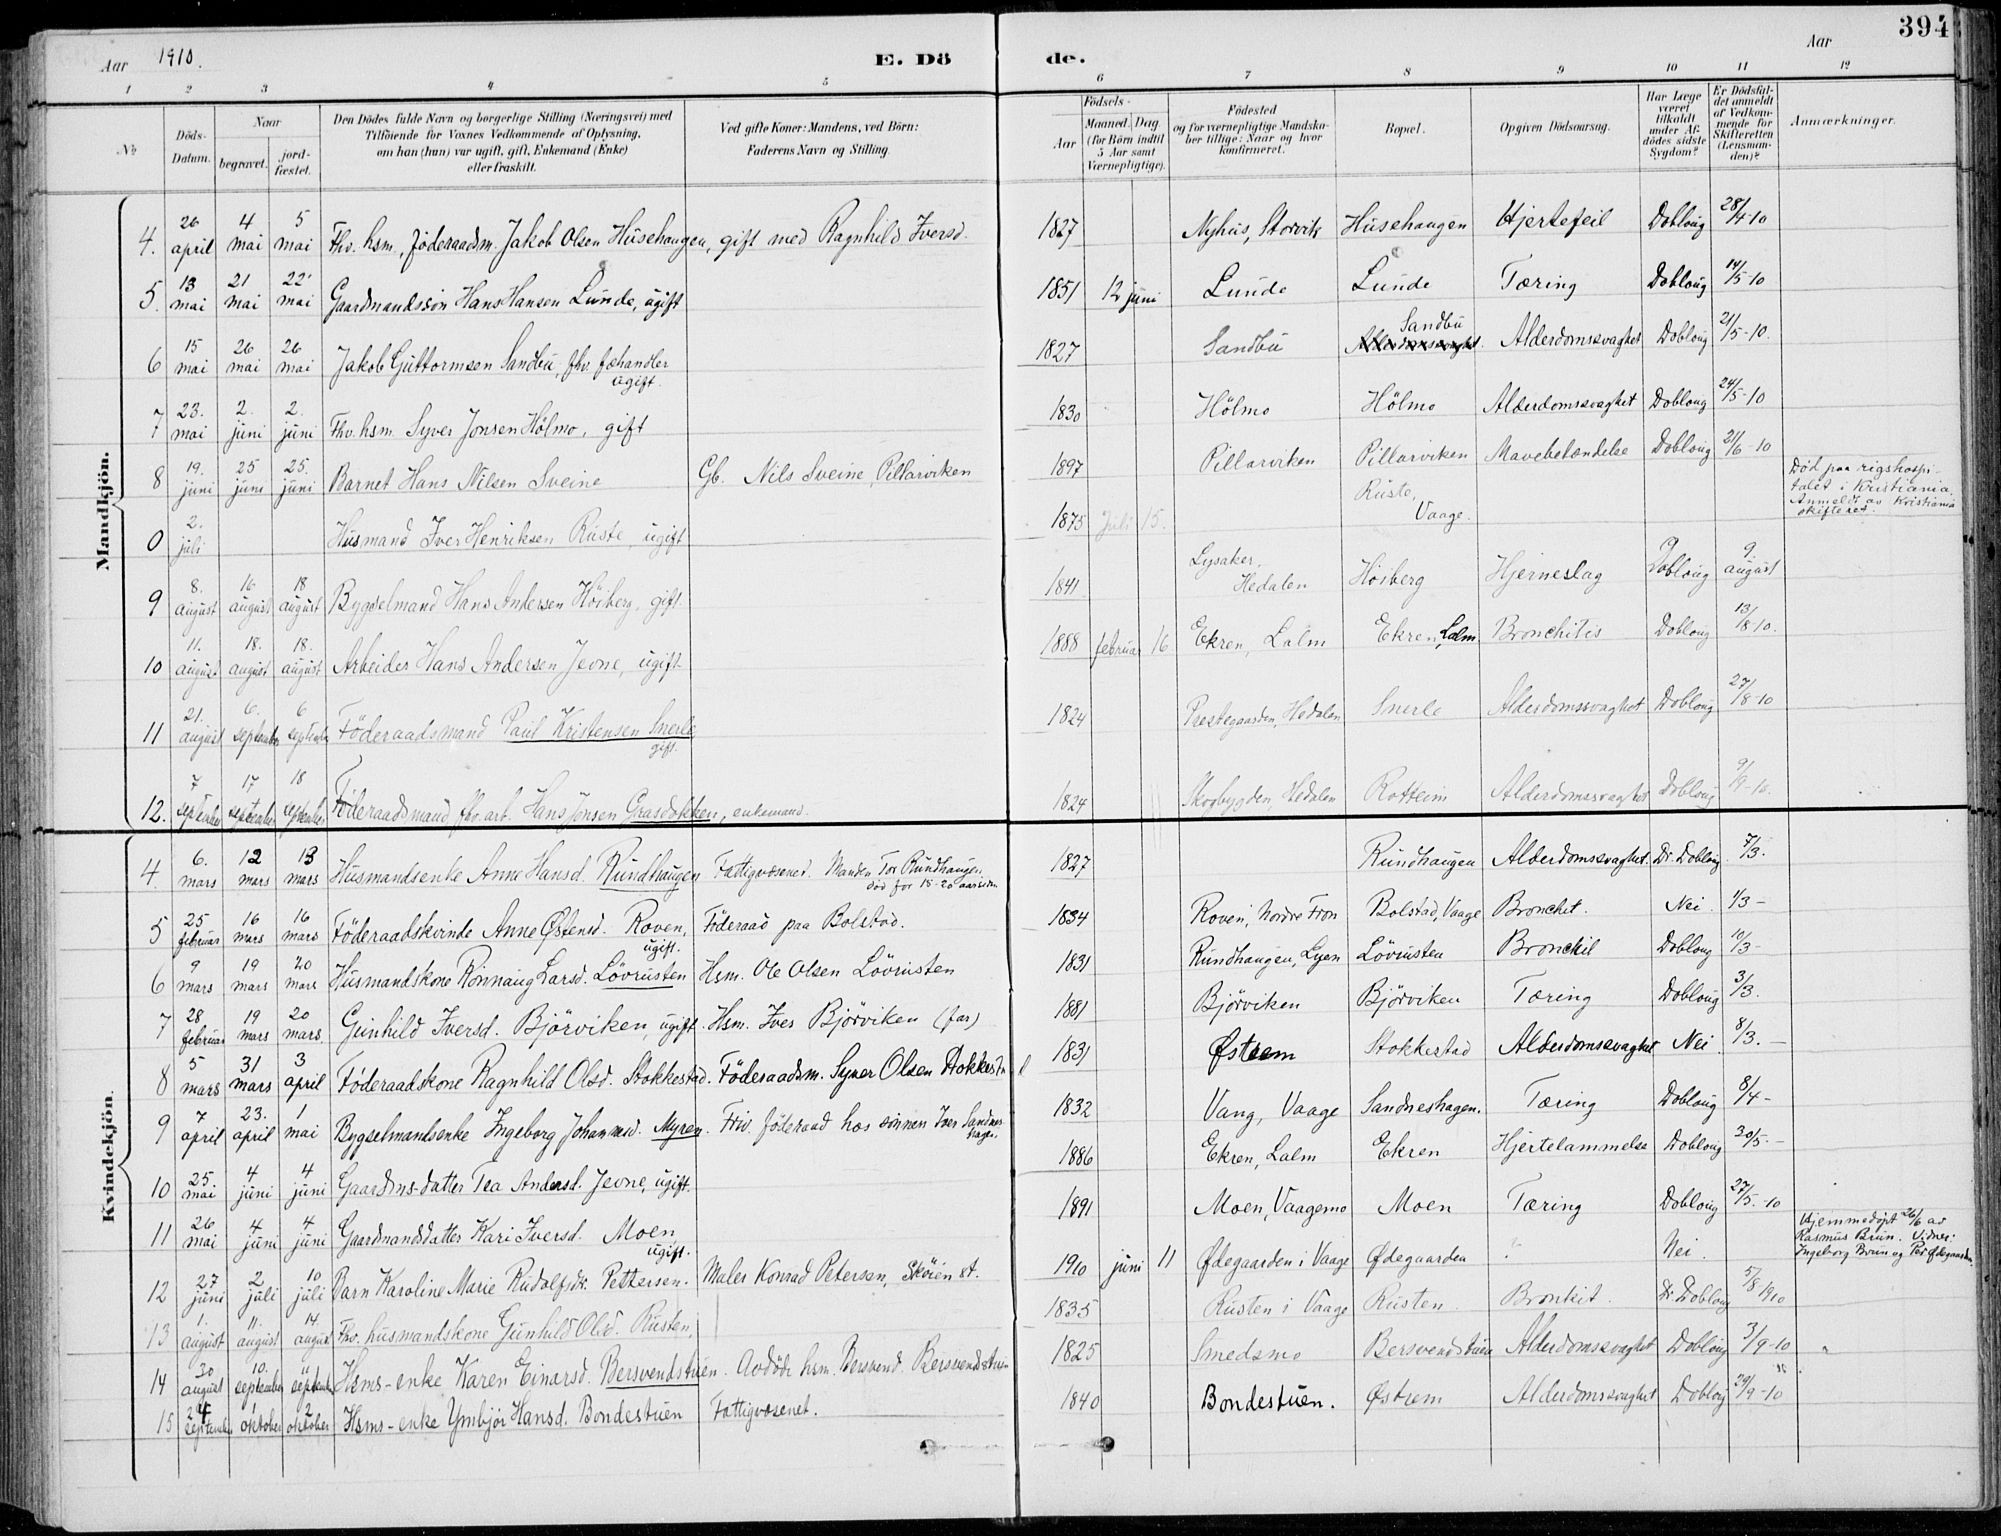 394
Aar 1910.
E. Döde.
Aar
1 2 3 4 5 6 7 8 9 10 11 12
No
Döds-Datum.
Naar begravet. jord-fæstet.
Den Dödes fulde Navn og borgerlige Stilling (Næringsvei) med
Tilföiende for Voxnes Vedkommende af Oplysning,
om han (hun) var ugift, gift, Enkemand (Enke)
eller fraskilt.
Ved gifte Koner: Mandens, ved Börn:
Faderens Navn og Stilling.
Födsels-
Aar Maaned. Dag
(for Börn indtil
5 Aar samt
Værnepligtige).
Födested
og for værnepligtige Mandska-
ber tillige: Naar og hvor
konfirmeret.
Bopæl.
Opgiven Dödsaarsag.
Har Læge
været
tilkaldt
under Af-
dödes sidste
Sygdom?
Er Dödsfal-
det anmeldt
af Vedkom-
mende for
Skifteretten
(Lensman-
den)?
Anmærkninger.
Mandkjön.
4. 26 april 4 mai 5 mai Fhv. hsm., föderaadsm. Jakob Olsen Husehaugen, gift med Ragnhild Iversd. 1827 Nyhus, Storvik Husehaugen Hjertefeil Dobloug 28/4-10
5. 13 mai 21 mai 22 mai Gaardmandssön Hans Hansen Lunde, ugift 1851 12 juni Lunde Lunde Tæring Dobloug 14/5-10
6 15 mai 26 mai 26 mai Jakob Guttormsen Sandbu, fhv. fæhandler ugift. 1827 Sandbu Sandbu Alderdomssvaghet Dobloug 21/5-10.
7 23. mai 2. juni 2. juni Fhv. hsm. Syver Jonsen Hölmo, gift 1830 Hölmo Hölmo Alderdomssvaghet Dobloug 24/5-10
8 19. juni 25 juni 25. juni Barnet Hans Nilsen Sveine Gb. Nils Sveine, Pillarviken 1897 Pillarviken Pillarviken Mavebetændelse Dobloug 21/6-10
0 2. juli Husmand Iver Henriksen Ruste, ugift 1875 Juli 15. Ruste, Vaage. Död paa rigshospi-
talet i Kristiania.
Anmeldt av Kristiania
skifteret.
9 8. august 16 august 18 august Bygselmand Hans Andersen Höiberg, gift. 1841 Lysaker, Hedalen Höiberg Hjerneslag Dobloug 9. august
10 11. august 18. august 18. august Arbeider Hans Andersen Jevne, ugift 1888 februar 16 Ekren, Lalm Ekren, Lalm Bronchitis Dobloug 13/8-10.
11 21. august 6. september 6 september Föderaadsmand Paul Kristensen Snerle gift. 1824 Prestegaarden, Hedalen Snerle Alderdomssvaghet Dobloug 27/8-10
12. 7 september 17 september 18 september Föderaadsmand fhv. arb. Hans Jonsen Grasdokken, enkemand. 1824 Skogbygden, Hedalen Rotteim Alderdomssvaghet Dobloug 9/9-10.
Kvindekjön.
4. 6. mars 12 mars 13 mars Husmandsenke Anne Hansd. Rundhaugen Fattigvæsenet. Manden Tor Rundhaugen, död for 15-20 aar siden 1827 Rundhaugen Alderdomssvaghet. Dr. Dobloug 7/3.
5 25 februar 16 mars 16 mars Föderaadskvinde Anne Østensd. Roven, ugift. Föderaad paa Bolstad. 1834 Roven, Nordre Fron Bolstad, Vaage Bronchit. Nei. 1/3 -
6 9 mars 19 mars 20 mars Husmandskone Rönnaug Larsd. Lövrusten Hsm. Ole Olsen Lövrusten 1831 Rundhaugen, Lyen Lövrusten Bronckit Dobloug 10/3-
7 28 februar 19 mars 20 mars. Gunhild Iversd. Björviken, ugift. Hsm. Iver Björviken (far) 1881 Björviken Björviken Tæring Dobloug 3/3.
8 5 mars 31 mars 3 april Föderaadskone Ragnhild Olsd. Stokkestad. Föderaadsm. Syver Olsen Stokkestad 1831 Østrem Stokkestad Alderdomssvaghet Nei. 8/3. -
9 7 april 23. april 1 mai Bygselmandsenke Ingeborg Johannesd. Myren. Friv. föderaad hos sönnen Iver Sandneshagen. 1832 Vang, Vaage Sandneshagen. Tæring Dobloug 8/4 -
10 25 mai 4 juni 4 juni Gaardms-datter Tea Andersd. Jevne, ugift. 1886 Ekren, Lalm Ekren Hjertelammelse Dobloug 30/5. -
11 26 mai 4 juni 4 juni Gaardmandsdatter Kari Iversd. Moen, ugift. 1891 Moen, Vaagemo Moen Tæring Dobloug 27/5.-10
12 27 juni 2 juli 10 juli Barn Karoline Marie Rudolfsdr. Pettersen. Maler Konrad Petersen, Sköien st. 1910 juni 11 Ødegaarden i Vaage Ødegaarden Nei. Hjemmedöpt 26/6 av
Rasmus Brun. Vidner:
Ingeborg Brun og Per Ødegaarden.
13 1. august 11. august 14. august Fhv. husmandskone Gunhild Olsd. Rusten, 1835 Rusten i Vaage Rusten. Bronkit. Dr. Dobloug 5/8 1910
14 30 august 10. september 11 septemb. Hsms-enke Karen Einarsd. Bersvendstuen. Avdöde hsm. Bersvend Bersvendstuen 1825 Smedsmo Bersvendstuen Alderdomssvaghet Dobloug 3/9-10
15 24 september 1 oktober 2 oktober Hsms-enke Ymbjör Hansd. Bondestuen Fattigvæsenet. 1840 Bondestuen. Østrem Alderdomssvaghet Dobloug 29/9-10